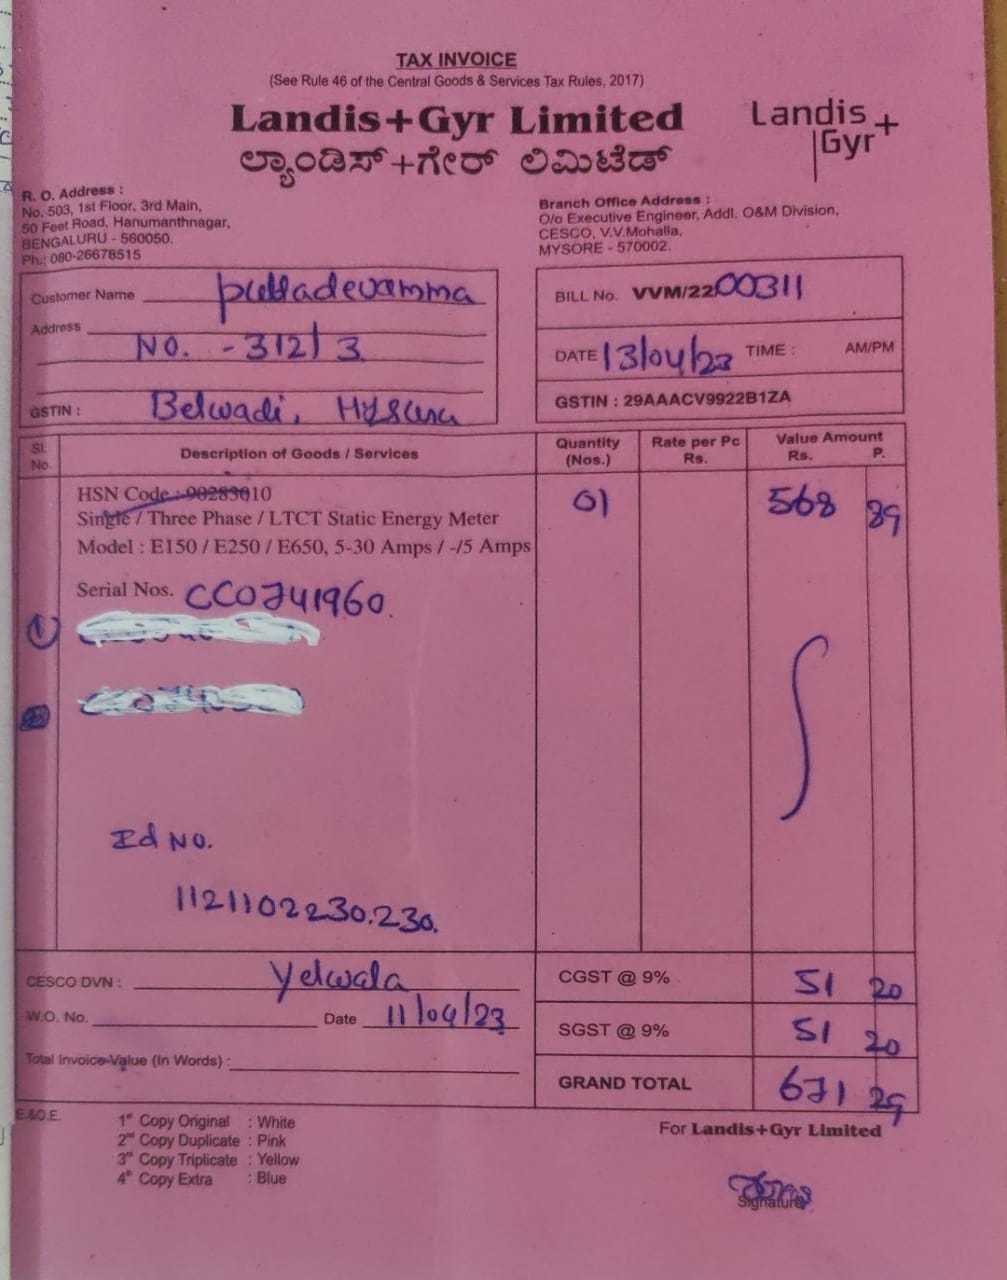 TAX INVOICE
(See Rule 46 of the Central Goods & Services Tax Rules, 2017)
Landis+Gyr Limited
Landis
Gyr+
ಲ್ಯಾಂಡಿಸ್+ಗೇರ್ ಲಿಮಿಟೆಡ್
R. O. Address :
No. 503, 1st Floor, 3rd Main,
50 Feet Road, Hanumanthnagar,
BENGALURU - 560050.
Ph.: 080-26678515
Branch Office Address :
O/o Executive Engineer, Addl. O&M Division,
CESCO, V.V.Mohalla,
MYSORE - 570002.
Customer Name puttadevamma
Address
NO. - 312/3
GSTIN : Belwadi,
BILL No. VVM/22 00311
DATE 13/04/23 TIME : AM/PM
GSTIN : 29AAACV9922B1ZA
Sl. No. Description of Goods / Services Quantity (Nos.) Rate per Pc Rs. Value Amount Rs. P.
HSN Code : 90283010 01 568 89
Single / Three Phase / LTCT Static Energy Meter
Model : E150 / E250 / E650, 5-30 Amps / -/5 Amps
Serial Nos. CC0741960.
1
Id NO.
1121102230.230.
CESCO DVN : Yelwala
W.O. No. Date 11/04/23
Total Invoice Value (In Words) :
CGST @ 9% 51 20
SGST @ 9% 51 20
GRAND TOTAL 671 29
E.&O.E.
1st Copy Original : White
2nd Copy Duplicate : Pink
3rd Copy Triplicate : Yellow
4th Copy Extra : Blue
For Landis+Gyr Limited
Signature